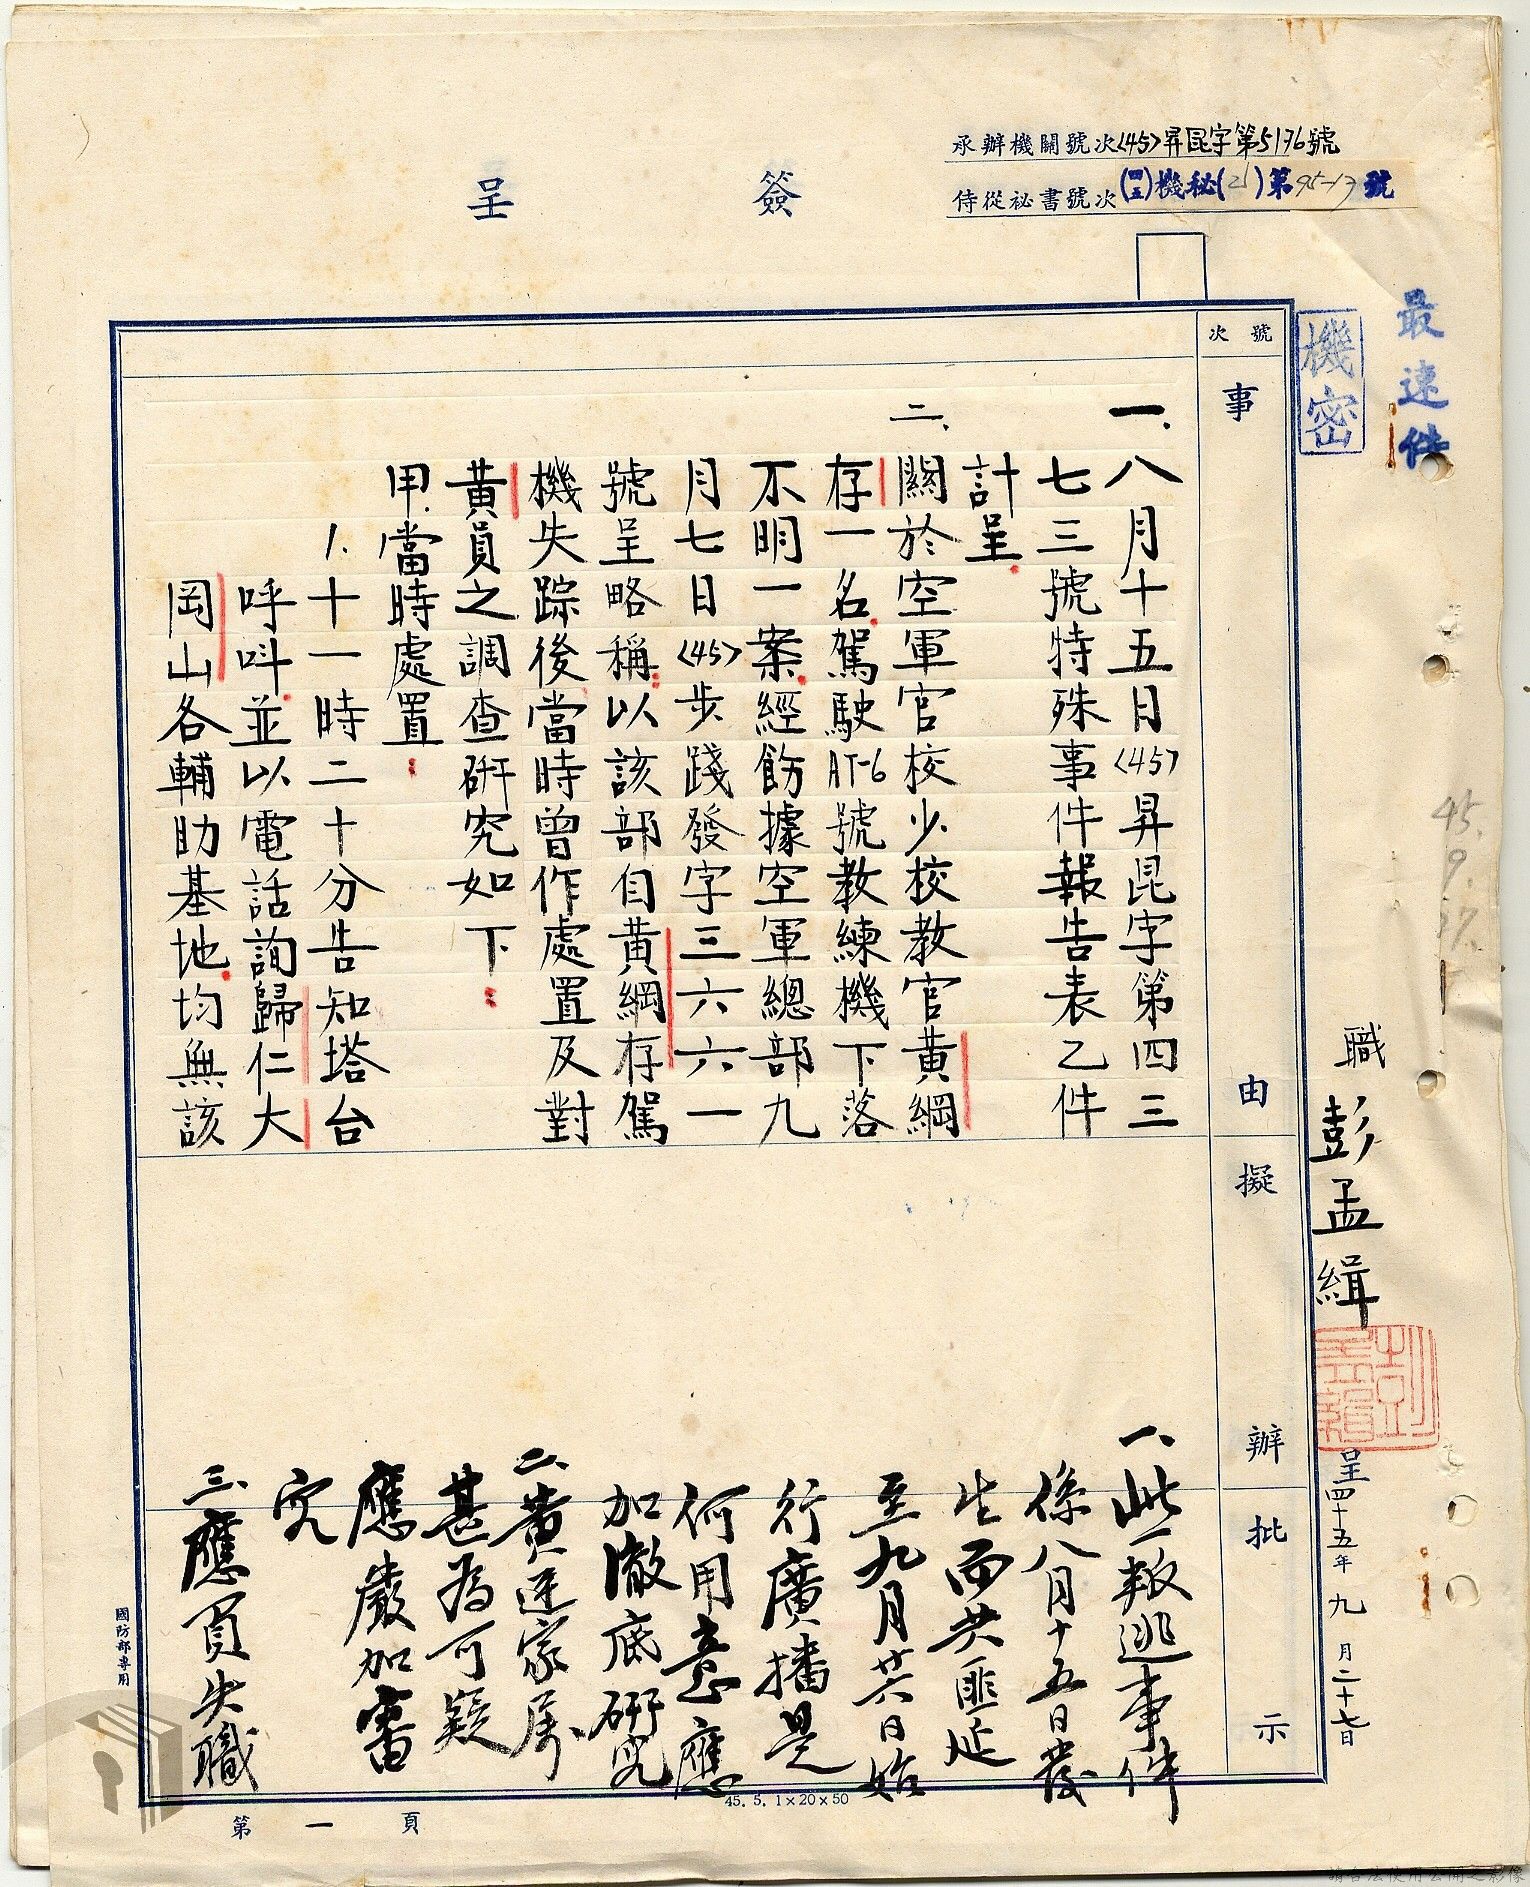 簽
呈
承辦機關號次〈45〉昇昆字第5176號
侍從祕書號次(四五)機秘(乙)第95-17號
最速件
機密
職彭孟緝
彭孟緝
呈四十五年九月二十七日
45.9.27.
號次
事由
擬辦
批示
一、八月十五日〈45〉昇昆字第四三
七三號特殊事件報告表乙件
計呈
二、關於空軍官校少校教官黃綱
存一名駕駛AT-6號教練機下落
不明一案經飭據空軍總部九
月七日〈45〉步踐發字三六六一
號呈略稱以該部自黃綱存駕
機失踪後當時曾作處置及對
黃員之調查研究如下
甲、當時處置
1.十一時二十分告知塔台
呼叫並以電話詢歸仁大
岡山各輔助基地均無該
一、此一叛逃事件
係八月十五日發
生而共匪延
至九月廿六日始
行廣播是
何用意應
加澈底研究
二、黃逆家屬
甚為可疑
應嚴加審
究
三、應負失職
國防部專用
45. 5. 1×20×50
第一頁
請合法使用公開之影像